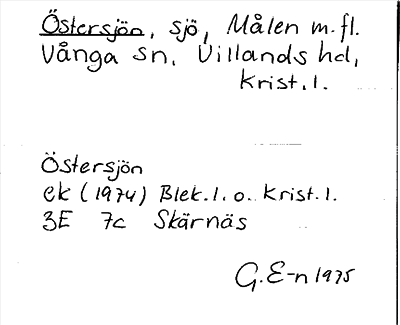 Östersjön, sjö, Målen m.fl.
Vånga sn, Villands hd,
Krist.l.
Östersjön
ek (1974) Blek.l. o. Krist.l.
3E 7c Skärnäs
G.E-n 1975